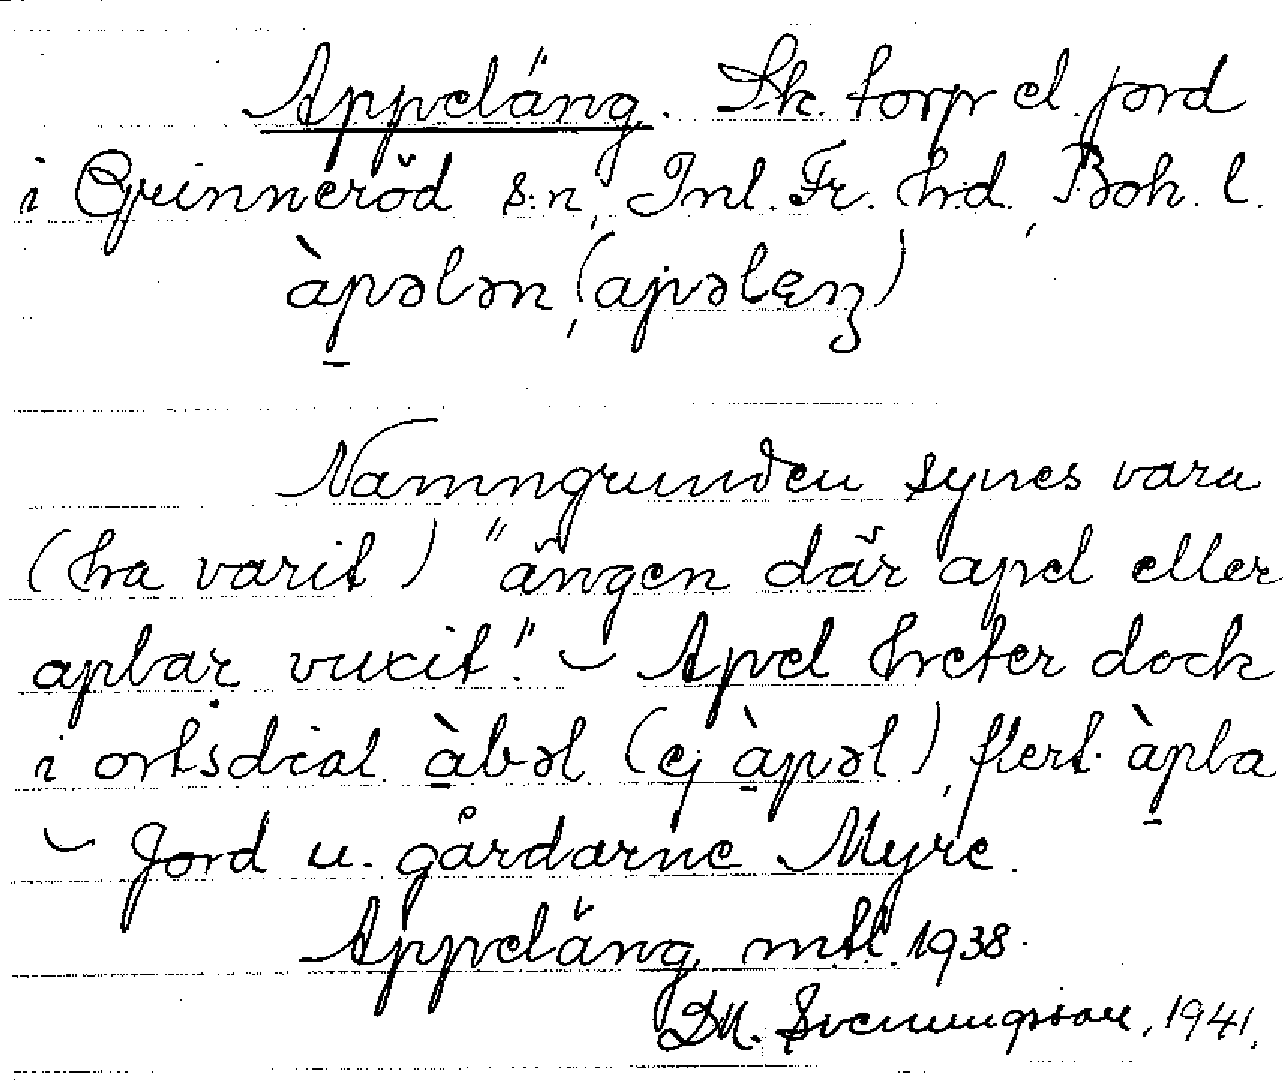 Appeläng. Sk. torp el. jord
i Grinneröd s:n, Inl. Fr. hd, Boh. l.
àpələn, (apəlɛŋ)
Namngrunden synes vara
(ha varit) "ängen där apel eller
aplar vuxit". – Apel heter dock
i ortsdial. àbəl (ej àpəl), flert. àpla
– Jord u. gårdarne Myre.
Appeläng mtl. 1938.
D.M. Svenningsson, 1941.